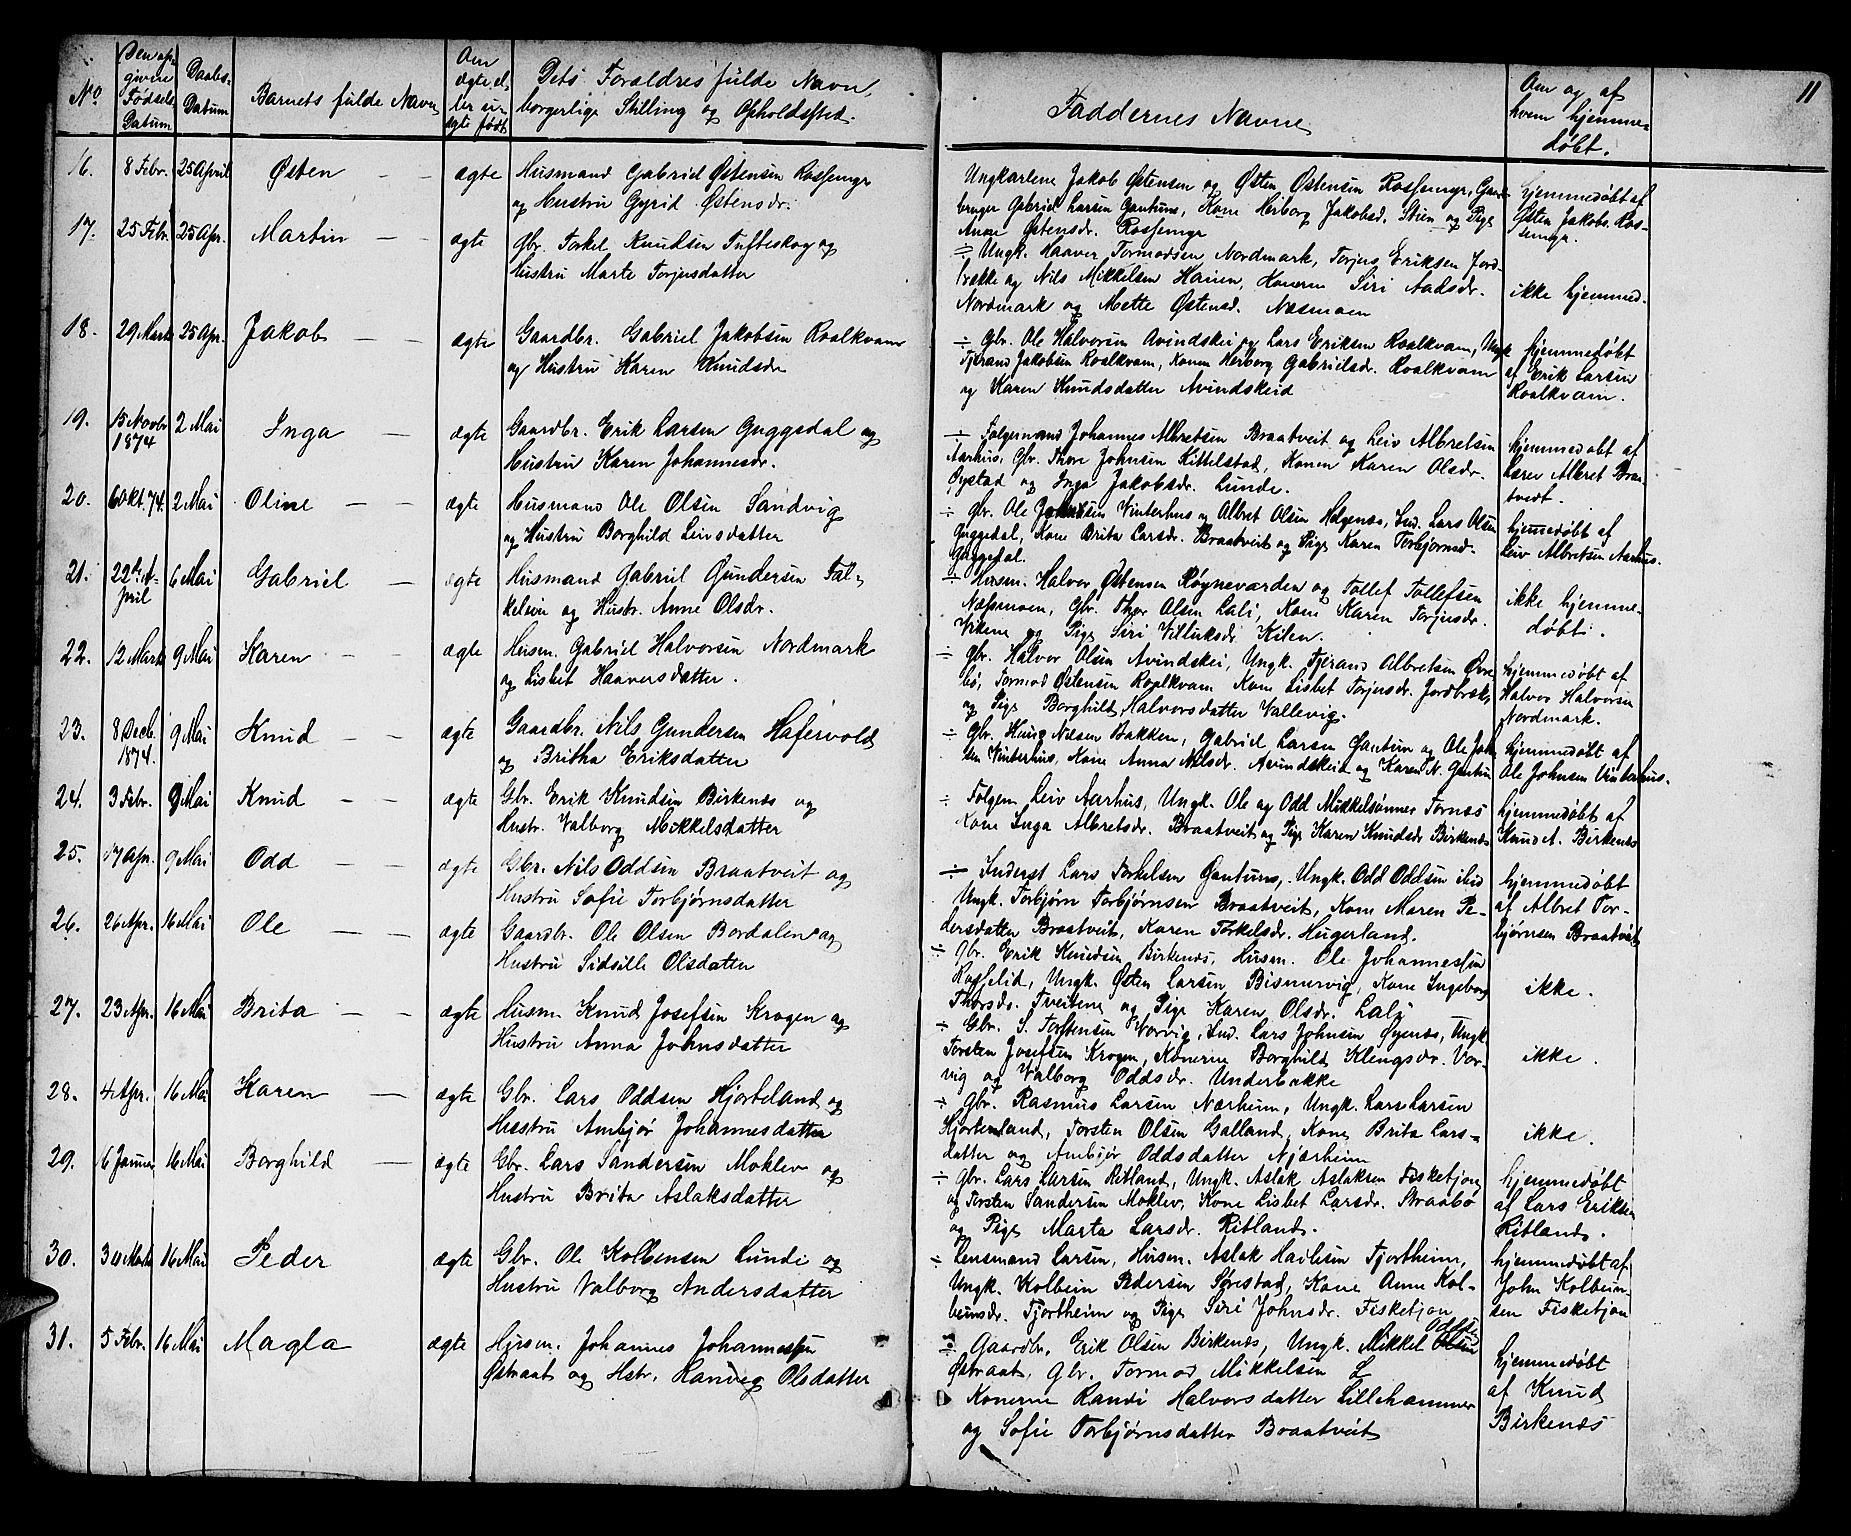 11
No
Den op-
givne
Fødsels
Datum
Daabs-
Datum
Barnets fulde Navn
Om
ægte el-
ler u-
ægte født
Dets Forældres fulde Navn,
borgerlige Stilling og Opholdsted.
Faddernes Navne
Om og af
hvem hjemme-
døbt.
16. 8 Febr. 25 April Østen — — ægte
Husmand Gabriel Østensen Rossemyr
og Hustru Gyrid Østensdr.
Ungkarlene Jakob Østensen og Østen Østensen Rossemyr, Gaard-
bruger Gabriel Larsen Gautun, Kone Herborg Jakobsd. Stien og Pige
Anne Østensdr. Rossemyr
hjemmedøbt af
Østen Jakobs. Ros-
semyr.
17. 25 Febr. 25 Apr. Martin — — ægte
Gbr. Torkel Knudsen Tufteskog og
Hustru Marte Torjusdatter
÷ Ungk. Haaver Tormodsen Nordmark, Torjus Eriksen Jord-
brække og Nils Mikkelsen Hauen, Konerne Siri Aadsdr.
Nordmark og Mette Østensd. Næsmoen
ikke hjemmed.
18. 29 Marts 25 Apr. Jakob — — ægte
Gaardbr. Gabriel Jakobsen Roalkvam
og Hustru Karen Knudsdr
÷ Gbr. Ole Halvorsen Avindskei og Lars Eriksen Roalkvam, Ungk
Tjerand Jakobsen Roalkvam, Konen Herborg Gabrielsd. Roalkvam
og Karen Knudsdatter Avindskeid
hjemmedøbt
af Erik Larsen
Roalkvam.
19. 15 Novbr 1874 2 Mai Inga — ægte
Gaardbr. Erik Larsen Guggedal og
Hustru Karen Johannesdr.
÷ Følgemand Johannes Albretsen Braatveit og Leiv Albretsen
Aarhus, Gbr. Thore Johnsen Kittelstad, Konen Karen Olsdr.
Øystad og Inga Jakobsdr. Lunde.
hjemmedøbt af
Lærer Albret Braa-
tveit.
20. 6 Okt. 74. 2 Mai Oline — — ægte
Husmand Ole Olsen Sandvig
og Hustru Borghild Leivsdatter
÷ Gbr. Ole Johnsen Vinterhus og Albret Olsen Helgenæs, Ind. Lars Olsen
Guggedal, Kone Brita Larsdr. Braatveit og Pige Karen Torbjørnsd.
Guggedal.
hjemmedøbt af
Leiv Albretsen Aarhus.
21. 22de A-
pril 6 Mai Gabriel — ægte
Husmand Gabriel Gundersen Fal-
keleiv og Hustr. Anne Olsdr.
÷ Husm. Halvor Østensen Røgneværden og Tollef Tollefsen
Næsmoen, Gbr. Thor Olsen Lali, Kone Karen Torjusdr.
Vikene og Pige Siri Villuksdr Kilen.
ikke hjemme-
døbt.
22. 12 Marts 9 Mai Karen — — ægte
Husm. Gabriel Halvorsen Nordmark
og Lisbet Haaversdatter.
÷ Gbr. Halvor Olsen Avindskei, Ungk. Tjerand Albretsen Øvre
bø, Tormod Østensen Roalkvam Kone Lisbet Torjusdr. Jordbræk,
og Pige Borghild Halvorsdatter Vallevig.
hjemmedøbt af
Halvor Halvorsen
Nordmark.
23. 8 Decb. 1874. 9 Mai Knud — — ægte
Gaardbr. Nils Gundersen Hafervold
og Britha Eriksdatter
÷ Gbr. Helge Nilsen Bakken, Gabriel Larsen Gautun og Ole John
sen Vinterhus, Kone Anna Nilsdr. Avindskeid og Karen N. Gautun
hjemmedøbt af
Ole Johnsen Vinterhus.
24. 3 Febr. 9 Mai Knud — — ægte
Gbr. Erik Knudsen Birkenæs og
Hustr. Valborg Mikkelsdatter
÷ Følgem. Leiv Aarhus, Ungk. Ole og Odd Mikkelsønner Fornæs
Kone Inga Albretsdr. Braatveit og Pige Karen Knudsdr Birkenæs
hjemmedøbt af
Knud A. Birkenæs
25. 17 Apr. 9 Mai Odd — — ægte
Gbr. Nils Oddsen Braatveit og
Hustru Sofie Torbjørnsdatter
÷ Inderst Lars Torkelsen Gautun, Ungk. Odd Oddsen ibid
Ungk. Torbjørn Torbjørnsen Braatveit, Kone Maren Pe-
dersdatter Braatveit, Karen Torkelsdr. Hugerland.
hjemmedøbt
af Albret Tor-
bjørnsen Braatveit
26. 26 Apr. 16 Mai Ole — — ægte
Gaardbr. Ole Olsen Bordalen og
Hustru Sidsille Olsdatter
÷ Gbr. Erik Knudsen Birkenæs, Husm. Ole Johannessen
Rosselid, Ungk. Østen Larsen Bismervig, Kone Ingeborg
Thorsdr. Tveitene og Pige Karen Olsdr. Lali
ikke.
27. 23 Apr. 16 Mai Brita — — ægte
Husm. Knud Josefsen Krogen og
Hustru Anna Johnsdatter
÷ Gbr. S. Torstensen Vorvig, Ind. Lars Johnsen Øyenæs, Ungk.
Torsten Josefsen Krogen, Konerne Borghild Klengsdr. Vor-
vig og Valborg Oddsdr. Underbakke
ikke.
28. 4 Apr. 16 Mai Karen — ægte
Gbr. Lars Oddsen Hjorteland og
Hustru Ambjør Johannesdatter
÷ Gbr. Rasmus Larsen Nærheim, Ungk. Lars Larsen
Hjorteland, Torsten Olsen Galland, Kone Brita Lars-
datter og Ambjør Oddsdatter Njærheim
ikke.
29. 6 Januar 16 Mai Borghild — ægte
Gbr. Lars Sandersen Moklev og
Hustru Brita Aslaksdatter
÷ Gbr. Lars Larsen Ritland, Ungk. Aslak Aslaksen Fisketjøn
og Torsten Sandersen Moklev, Kone Lisbet Larsdr. Straabø
og Pige Marta Larsdr. Ritland.
hjemmedøbt
af Lars Eriksen
Ritland.
30. 30 Marts 16 Mai Peder ægte
Gbr. Ole Kolbensen Lunde og
Hustru Valborg Andersdatter
÷ Lensmand Larsen, Husm. Aslak Hailesen Fjortheim,
Ungk. Kolbein Pedersen Sørestad, Kone Anne Kol-
beinsdr. Fjortheim og Pige Siri Johnsdr. Fisketjøn
hjemmedøbt af
John Kolbein-
sen Fisketjøn
31. 5 Febr. 16 Mai Magla ægte
Husm. Johannes Johannessen
Østraat og Hstr. Ranveg Olsdatter
÷ Gaardbr. Erik Olsen Birkenæs, Ungk. Mikkel Olsen
Østraat, Gbr. Tormod Mikkelsen L
Konerne Randi Halvorsdatter Lillehammer
og Sofie Torbjørnsdatter Braatveit
hjemmedøbt
af Knud
Birkenæs